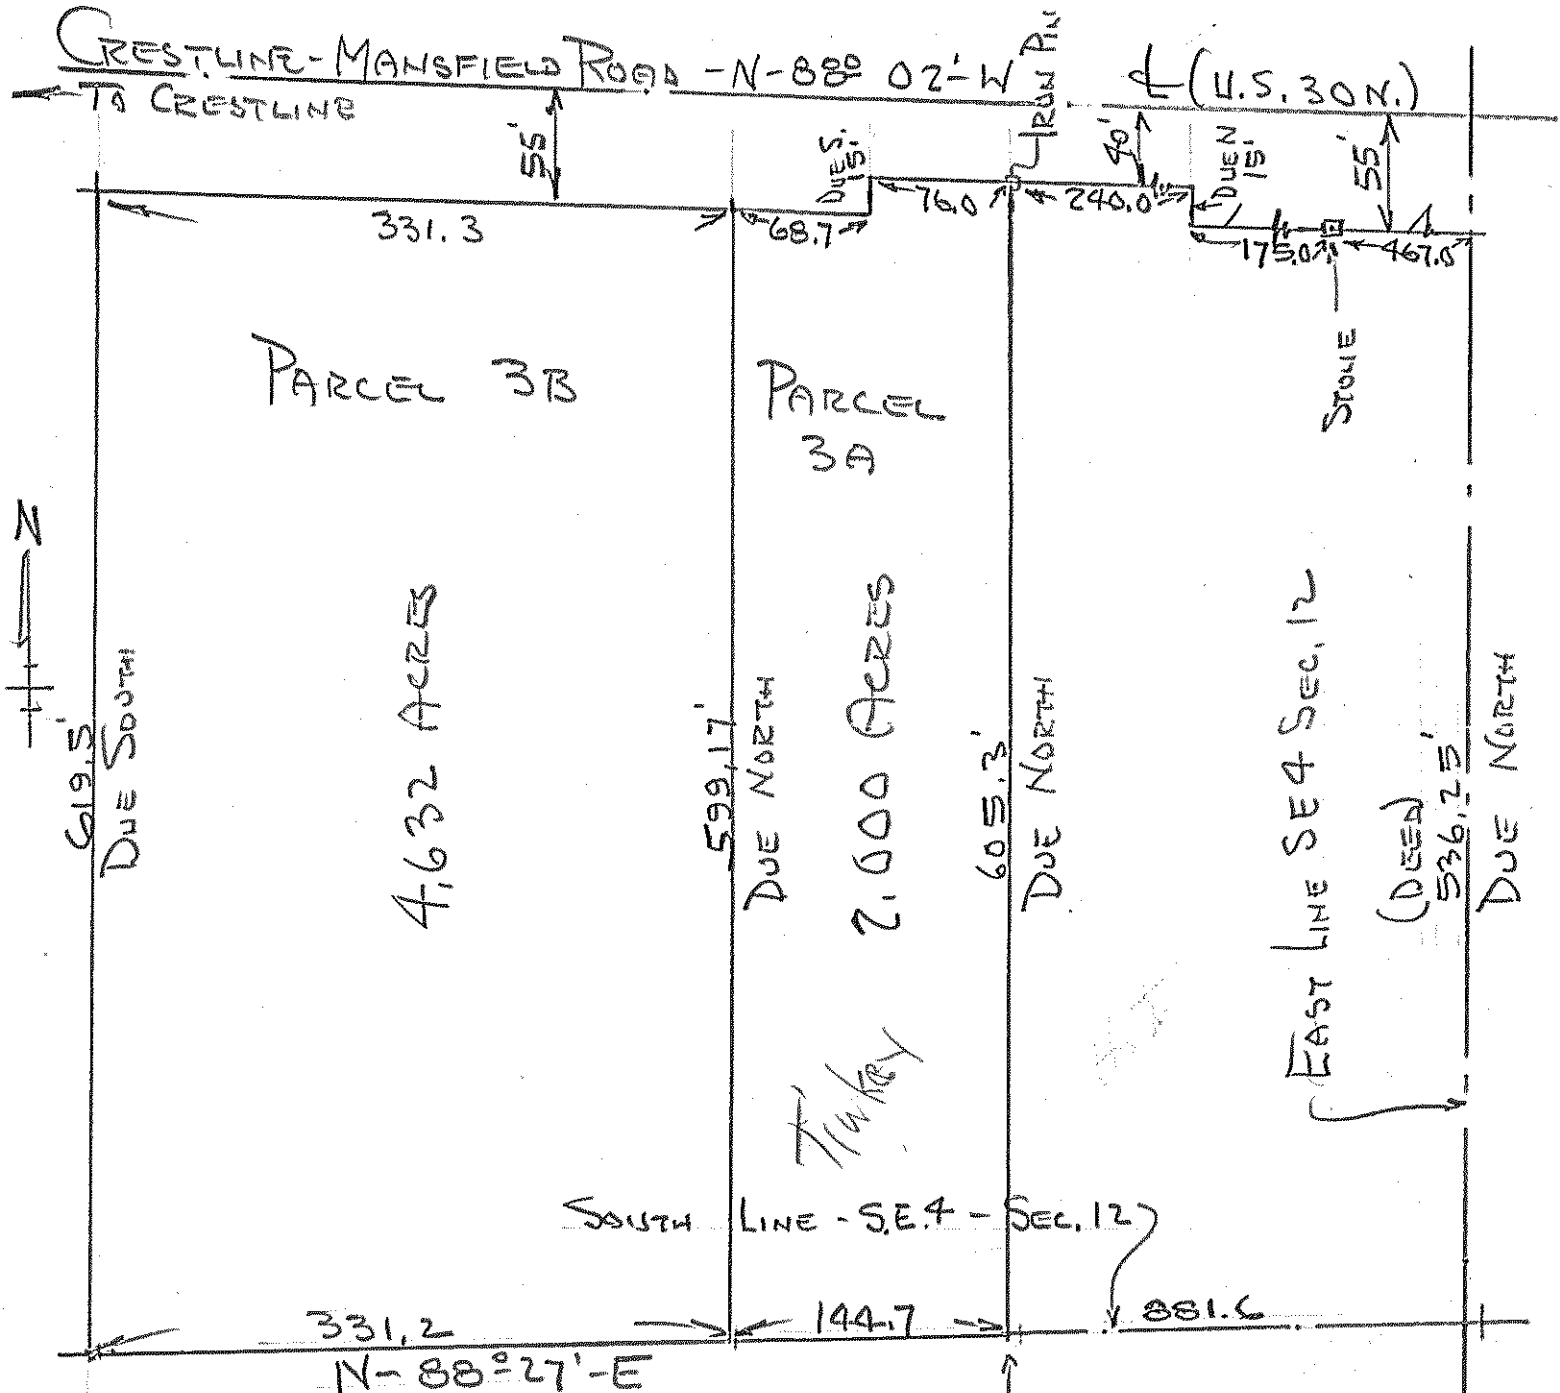 CRESTLINE-MANSFIELD ROAD -N-88° 02'-W ℄ (U.S. 30 N.)
TO CRESTLINE
IRON PIN
55'
DUE S.
15.'
40'
DUE N
15'
55'
331.3
68.7
76.0
240.0
175.0
467.0
STONE
PARCEL 3B
PARCEL
3A
N
619.5'
DUE SOUTH
4.632 ACRES
599.17'
DUE NORTH
2.000 ACRES
605.3'
DUE NORTH
EAST LINE SE 4 SEC. 12
(DEED)
536.25'
DUE NORTH
SOUTH LINE - S.E. 4 - SEC. 12
331.2
144.7
881.6
N-88°27'-E